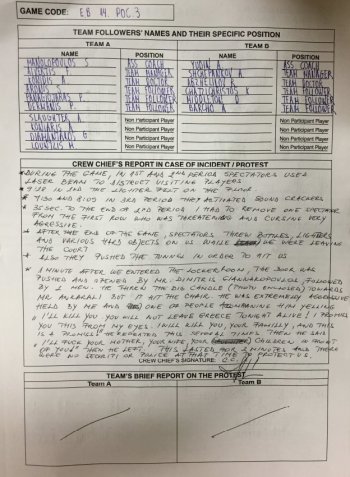 GAME CODE: EB 14. POC.3
TEAM FOLLOWERS' NAMES AND THEIR SPECIFIC POSITION
TEAM A TEAM B
NAME POSITION NAME POSITION
MANOLOPOULOS S ASS COACH YUDIN A ASS COACH
TEAM MANAGER SHCHEPANKOV A TEAM MANAGER
TEAM DOCTOR ABZHELILOV R TEAM DOCTOR
KRONOS S TEAM FOLLOWER CHATZICHRISTOS K TEAM FOLLOWER
TEAM FOLLOWER MIDDLETON D TEAM FOLLOWER
DERMANIS P TEAM FOLLOWER BARCHO A TEAM FOLLOWER
SLAUGHTER A Non Participant Player Non Participant Player
KONIARIS Non Participant Player Non Participant Player
DIAMANTAKOS G Non Participant Player Non Participant Player
LOUNTZIS M Non Participant Player Non Participant Player
CREW CHIEF'S REPORT IN CASE OF INCIDENT / PROTEST
* DURING THE GAME, IN 1ST AND 2ND PERIOD SPECTATORS USED
LASER BEAM TO DISTRUCT VISITING PLAYERS
* 9:28 IN 2ND THE LIGHTER SENT ON THE FLOOR
* 7:30 AND 8:05 IN 3RD PERIOD THEY ACTIVATED SOUND CRACKERS
* 35 SEC. TO THE END OF 2ND PERIOD I HAD TO REMOVE ONE SPECTATOR
FROM THE FIRST ROW WHO WAS THREATENING AND CURSING VERY
AGRESSIVE.
* AFTER THE END OF THE GAME, SPECTATORS THREW BOTTLES, LIGHTERS
AND VARIOUS HARD OBJECTS ON US WHILE WE WERE LEAVING
THE COURT
ALSO THEY PUSHED THE TUNNEL IN ORDER TO HIT US
* 1 MINUTE AFTER WE ENTERED THE LOCKER ROOM, THE DOOR WAS
PUSHED AND OPENED BY MR. DIMITRIS GIANNAKOPOULOS FOLLOWED
BY 2 MEN. HE THREW THE BIG CANDLE (PHOTO ENCLOSED) TOWARDS
MR ANKARALI BUT IT HIT THE CHAIR. HE WAS EXTREMELY AGGRESSIVE
HELD BY ME AND ONE OF PEOPLE ACOMPANING HIM YELLING
"I'LL KILL YOU, YOU WILL NOT LEAVE GREECE TONIGHT ALIVE! I PROMISE
YOU THIS FROM MY EYES. I WILL KILL YOU, YOUR FAMILLY, AND THIS
IS A PROMISE" HE REPEATED THIS SEVERAL TIMES. THEN HE SAID
"I'LL FUCK YOUR MOTHER, YOUR WIFE, YOUR CHILDREN IN FRONT
OF YOU!" THEN HE LEFT. THIS LASTED FOR 2 MINUTES AND THERE
WERE NO SECURITI OR POLICE AT THAT TIME TO PROTECT US.
CREW CHIEF'S SIGNATURE: C.C.
TEAM'S BRIEF REPORT ON THE PROTEST
Team A Team B